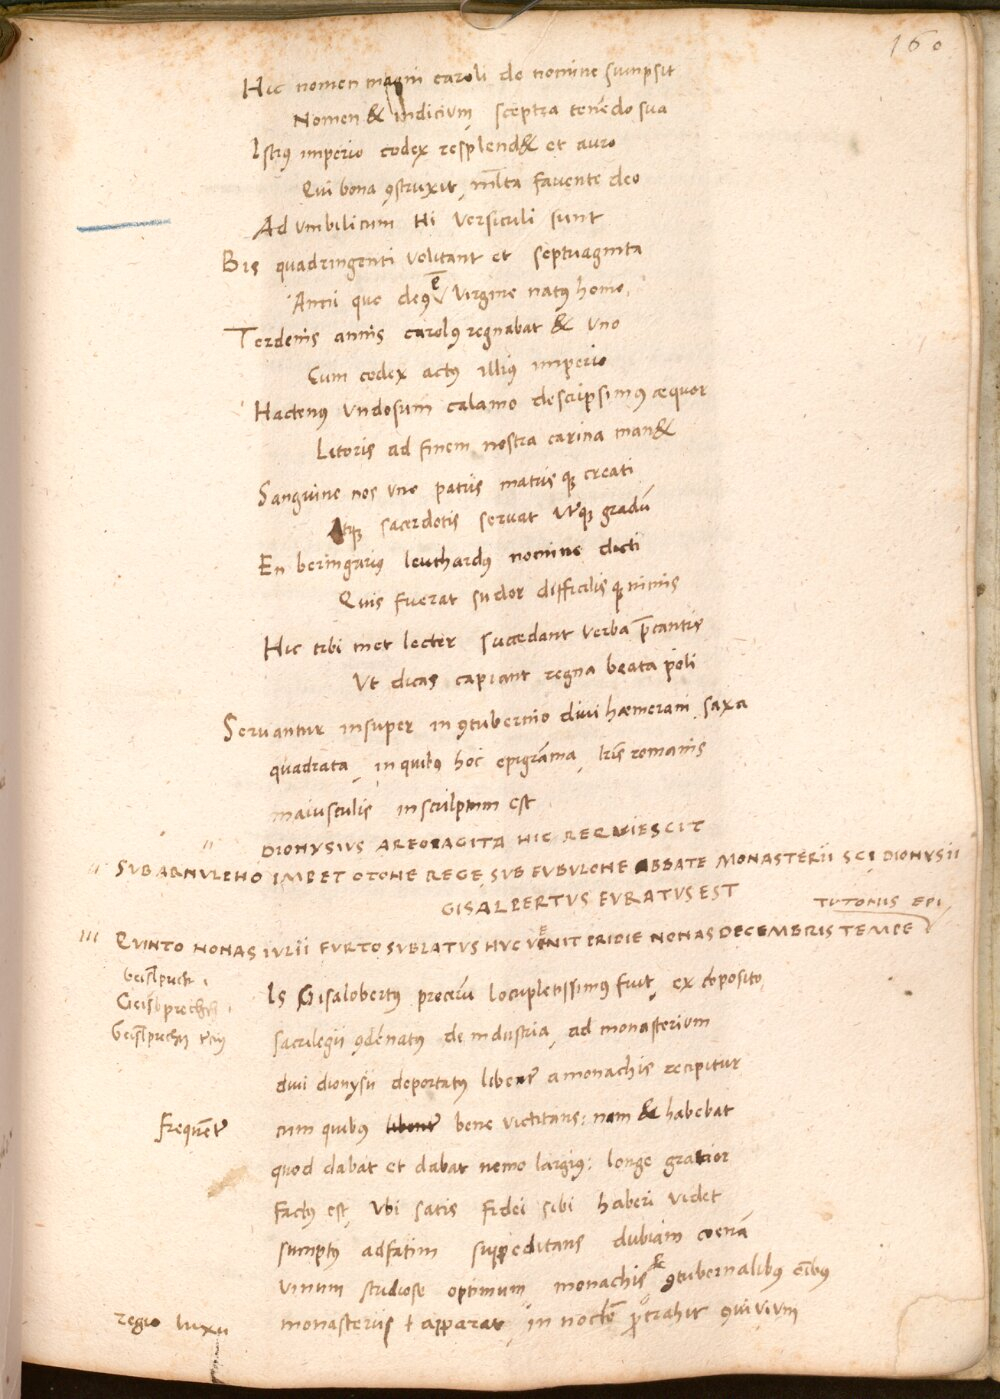 160
Hic nomen magni caroli de nomine sumpsit
Nomen & indicium sceptra tenēdo sua
Istiꝰ imperio codex resplend& et auro
Qui bona ꝯstruxit mlta favente deo
Ad umbilicum Hi versiculi sunt
Bis quadringenti volitant et septuaginta
Anni quo deꝰ e virgine natꝰ homo,
Terdenis annis carolꝰ regnabat & uno
Cum codex actꝰ illiꝰ imperio
Hactenꝰ undosum calamo descripsimꝰ æquor
Litoris ad finem nostra carina man&
Sanguine nos uno patris matris qꝫ creati
Atqꝫ sacerdotis servat uterqꝫ gradū
En beringariꝰ leuthardꝰ nomine dicti
Quis fuerat sudor difficilis qꝫ nimis
Hic tibi met lector succedant verba p̄cantis
Ut dicas capiant regna beata poli
Servantur insuper in ꝯtubernio divi hæmerani saxa
quadrata, in quibꝰ hoc epigrāma, lr̄is romanis
maiusculis inscriptum est
DIONYSIUS AREOPAGITA HIC REQUIESCIT
SUB ARNULPHO IMPET OTONE REGE SUB EUBULONE ABBATE MONASTERII SCI DIONYSII
GISALPERTUS FURATUS EST
TUTONIS EPI
III QUINTO NONAS IULII FURTO SUBLATUS HUC VENIT PRIDIE NONAS DECEMBRIS TEMPE
Geislpricht
Is Gisalobertꝰ procerū locupletissimꝰ fuit, ex cōposito,
Geislprecht
sacrilegii ꝯdēnatꝰ de industria, ad monasterium
divi dionysii deportatꝰ libenter a monachis recipitur
Frequēter
cum quibꝰ libenter bene victitans: nam & habebat
quod dabat et dabat nemo largiꝰ: longe gratior
factꝰ est, ubi satis fidei sibi haberi videt
sumptꝰ adfatim suppeditans dubiam coenā
vinum studiose optimum monachis & ꝯtubernalibꝰ oībꝰ
regio luxu
monasterii apparat, in noctē protrahit ꝯvivium